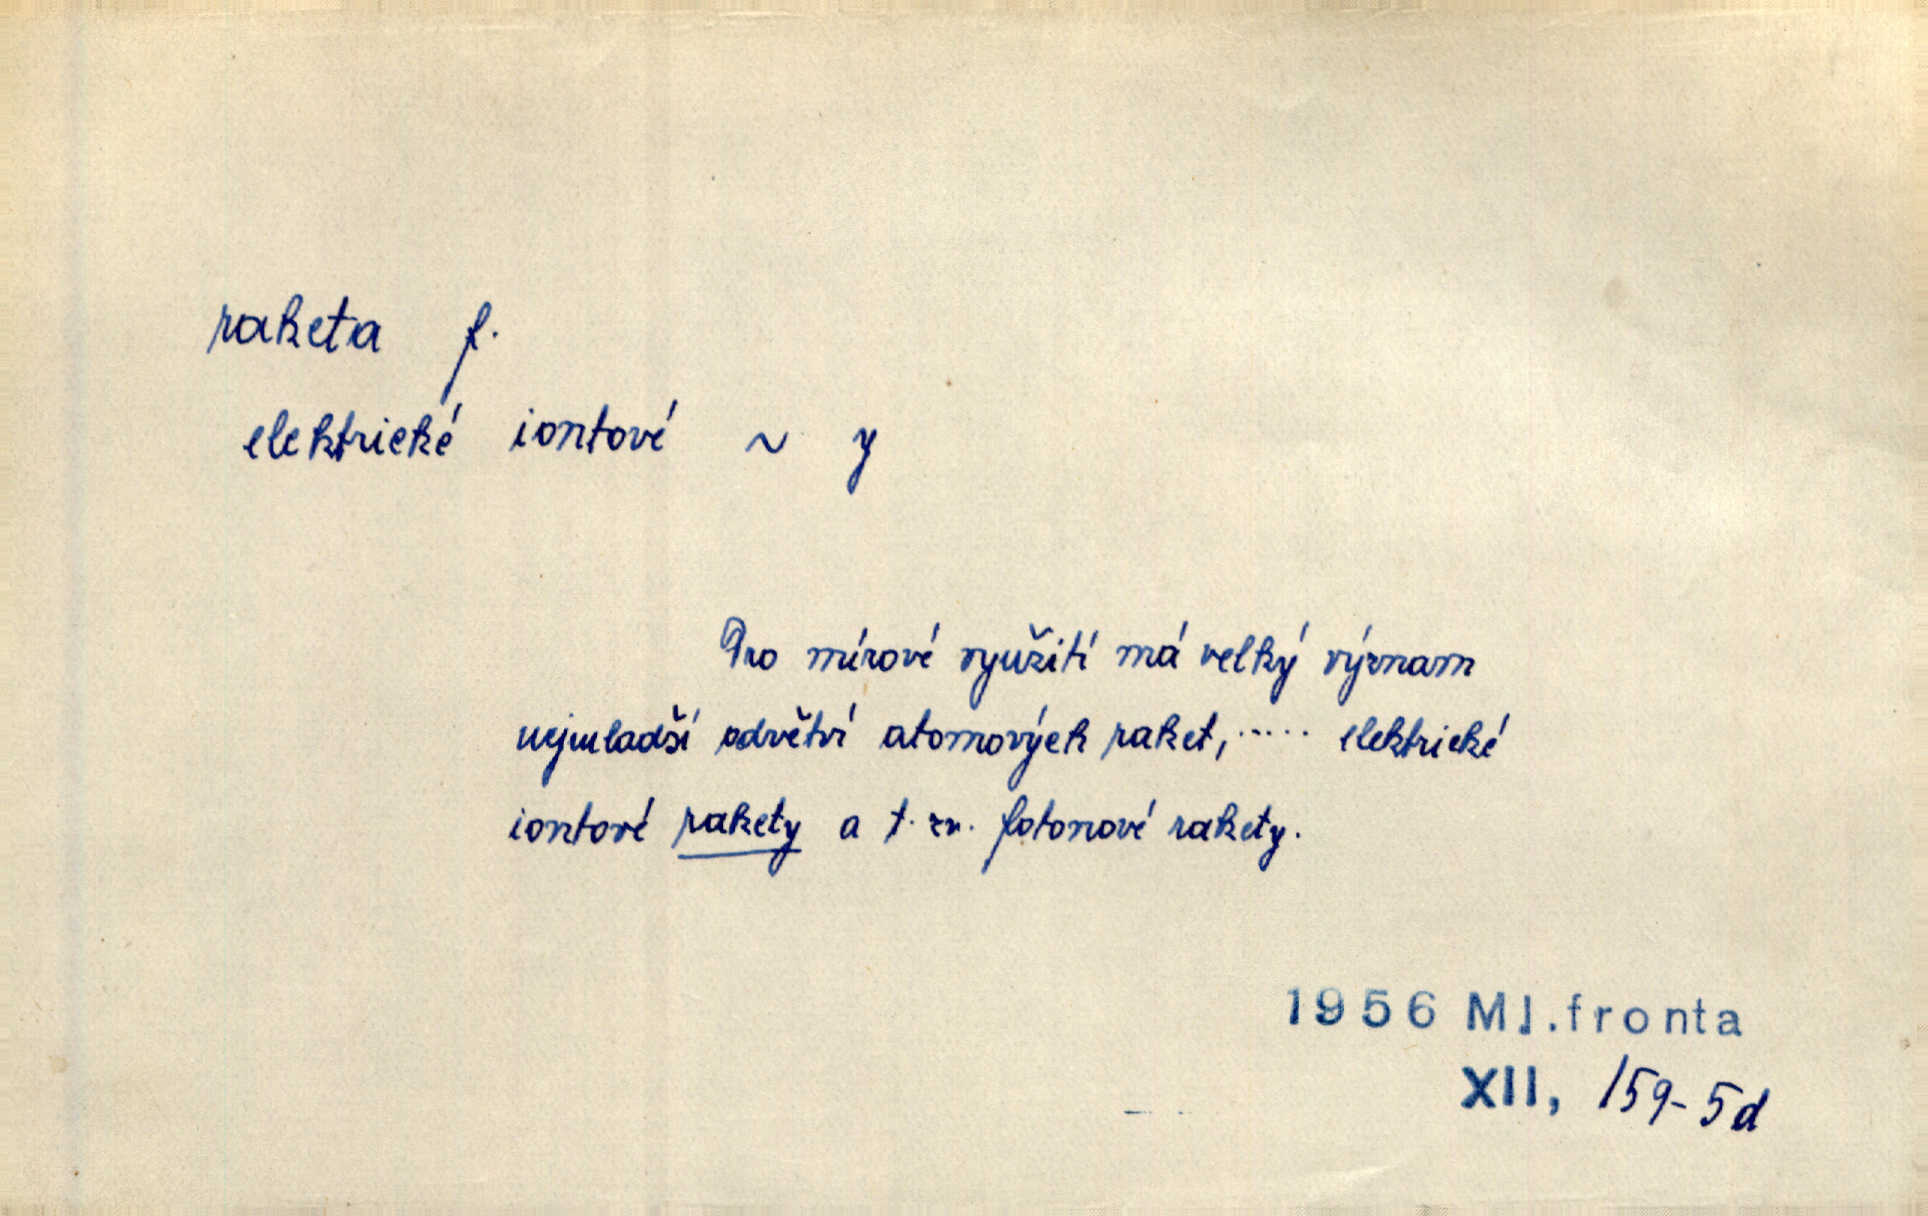 raketa f.
elektrické iontové ~ y
Pro mírové využití má velký význam
nejmladší odvětví atomových raket, ..... elektrické
iontové rakety a t. zv. fotonové rakety.
1956 Ml.fronta
XII, 159-5d